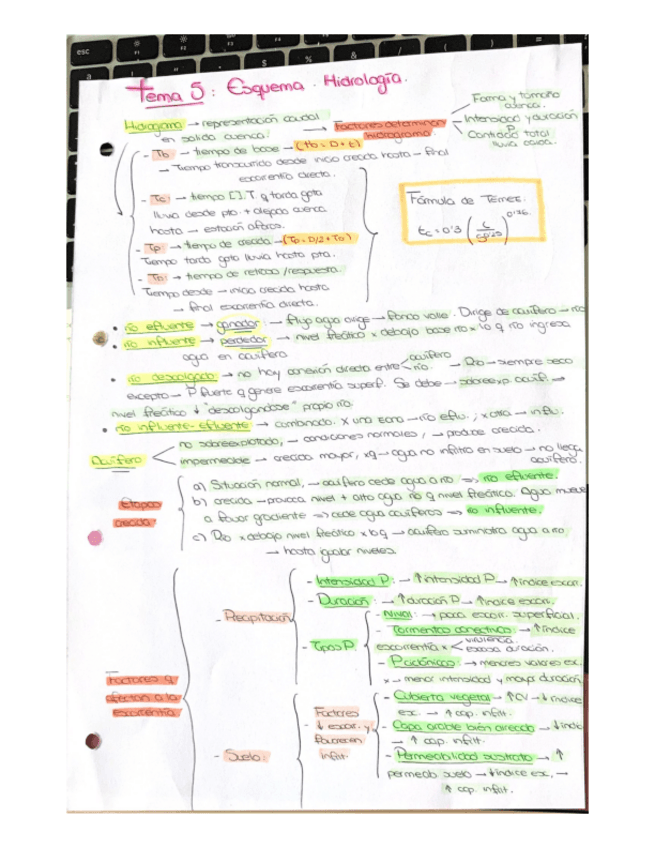 esc
Tema 5: Esquema Hidrología.
Hidrograma → representación caudal en salida cuenca.
→ Factores determinan hidrograma.
Forma y tamaño cuenca.
Intensidad y duración P
Cantidad total lluvia caída.
- Tb → tiempo de base → (tb = D + t)
→ Tiempo transcurrido desde inicio crecida hasta → final
escorrentía directa.
- Tc → tiempo [].T q tarda gota
lluvia desde pto. + alejado cuenca
hasta → estación aforos.
- Tp → tiempo de crecida → (Tp = D/2 + Tr)
Tiempo tarda gota lluvia hasta pta.
- Tr: → tiempo de retraso/respuesta.
Tiempo desde → inicio crecida hasta
→ final escorrentía directa.
Fórmula de Témez.
tc = 0'3 (L / S^0'25)^0'76
• río efluente → ganador → flujo agua dirige → fondo valle. Dirige de acuífero → río
• río influente → perdedor → nivel freático x debajo base río x lo q río ingresa
agua en acuífero
• río descolgado → no hay conexión directa entre < acuífero río. → Río → siempre seco
excepto → P fuerte q genere escorrentía superf. Se debe → sobreexp. acuíf. →
nivel freático ↓ "descolgándose" propio río.
• río influente-efluente → combinado. X una zona → río eflu.; x otra → influ.
Acuífero
no sobreexplotado, → condiciones normales, → produce crecida.
impermeable → crecida mayor, xq → agua no infiltra en suelo → no llega acuífero.
Etapas crecida
a) Situación normal, → acuífero cede agua a río ⇒ río efluente.
b) crecida → provoca nivel + alto agua río q nivel freático. Agua mueve
a favor gradiente ⇒ cede agua acuíferos ⇒ río influente.
c) Río x debajo nivel freático x lo q → acuífero suministra agua a río
→ hasta igualar niveles.
Factores q afectan a la escorrentía
- Precipitación
- Intensidad P: → ↑ intensidad P → ↑ índice escorr.
- Duración: → ↑ duración P → ↑ índice escorr.
- Tipos P
- Nival: → poca escorr. superficial.
- Tormentas convectivas: → ↑ índice
escorrentía x < virulencia. escasa duración.
- P. ciclónica: → menores valores ex.
x → menor intensidad y mayor duración.
- Suelo:
Factores ↓ escorr. y favorecen infilt.
- Cubierta vegetal: → ↑ CV → ↓ índice
ex. → ↑ cap. infilt.
- Capa arable bien aireada → ↓ índ
→ ↑ cap. infilt.
- Permeabilidad sustrato: → ↑
permeab suelo → ↓ índice ex. →
↑ cap. infilt.